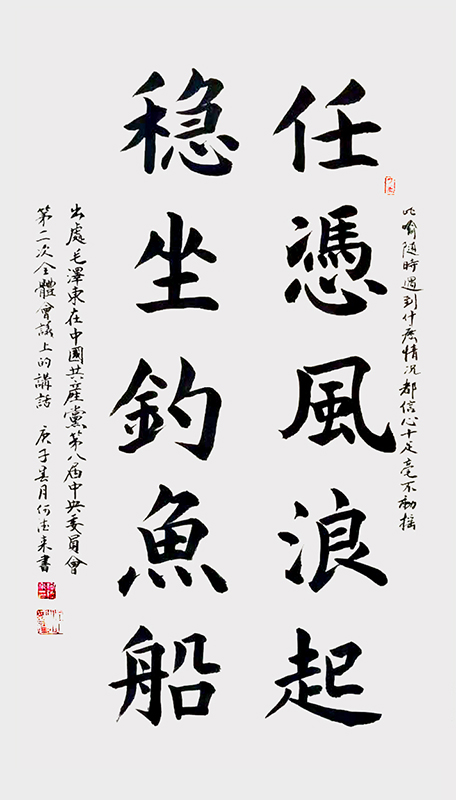 任憑風浪起
穩坐釣魚船
比喻随時遇到什麽情况都信心十足毫不動摇
出處毛澤東在中國共産黨第八届中央委員會
第二次全體會議上的講話 庚子春月何德来書